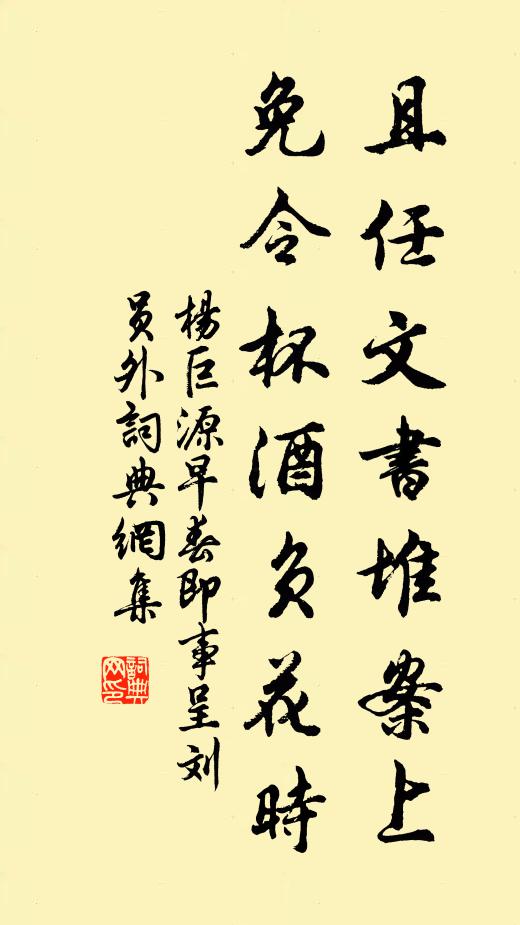 且任文書堆案上
免令杯酒負花時
楊巨源早春即事呈刘
員外詞典網集
詞典
网印